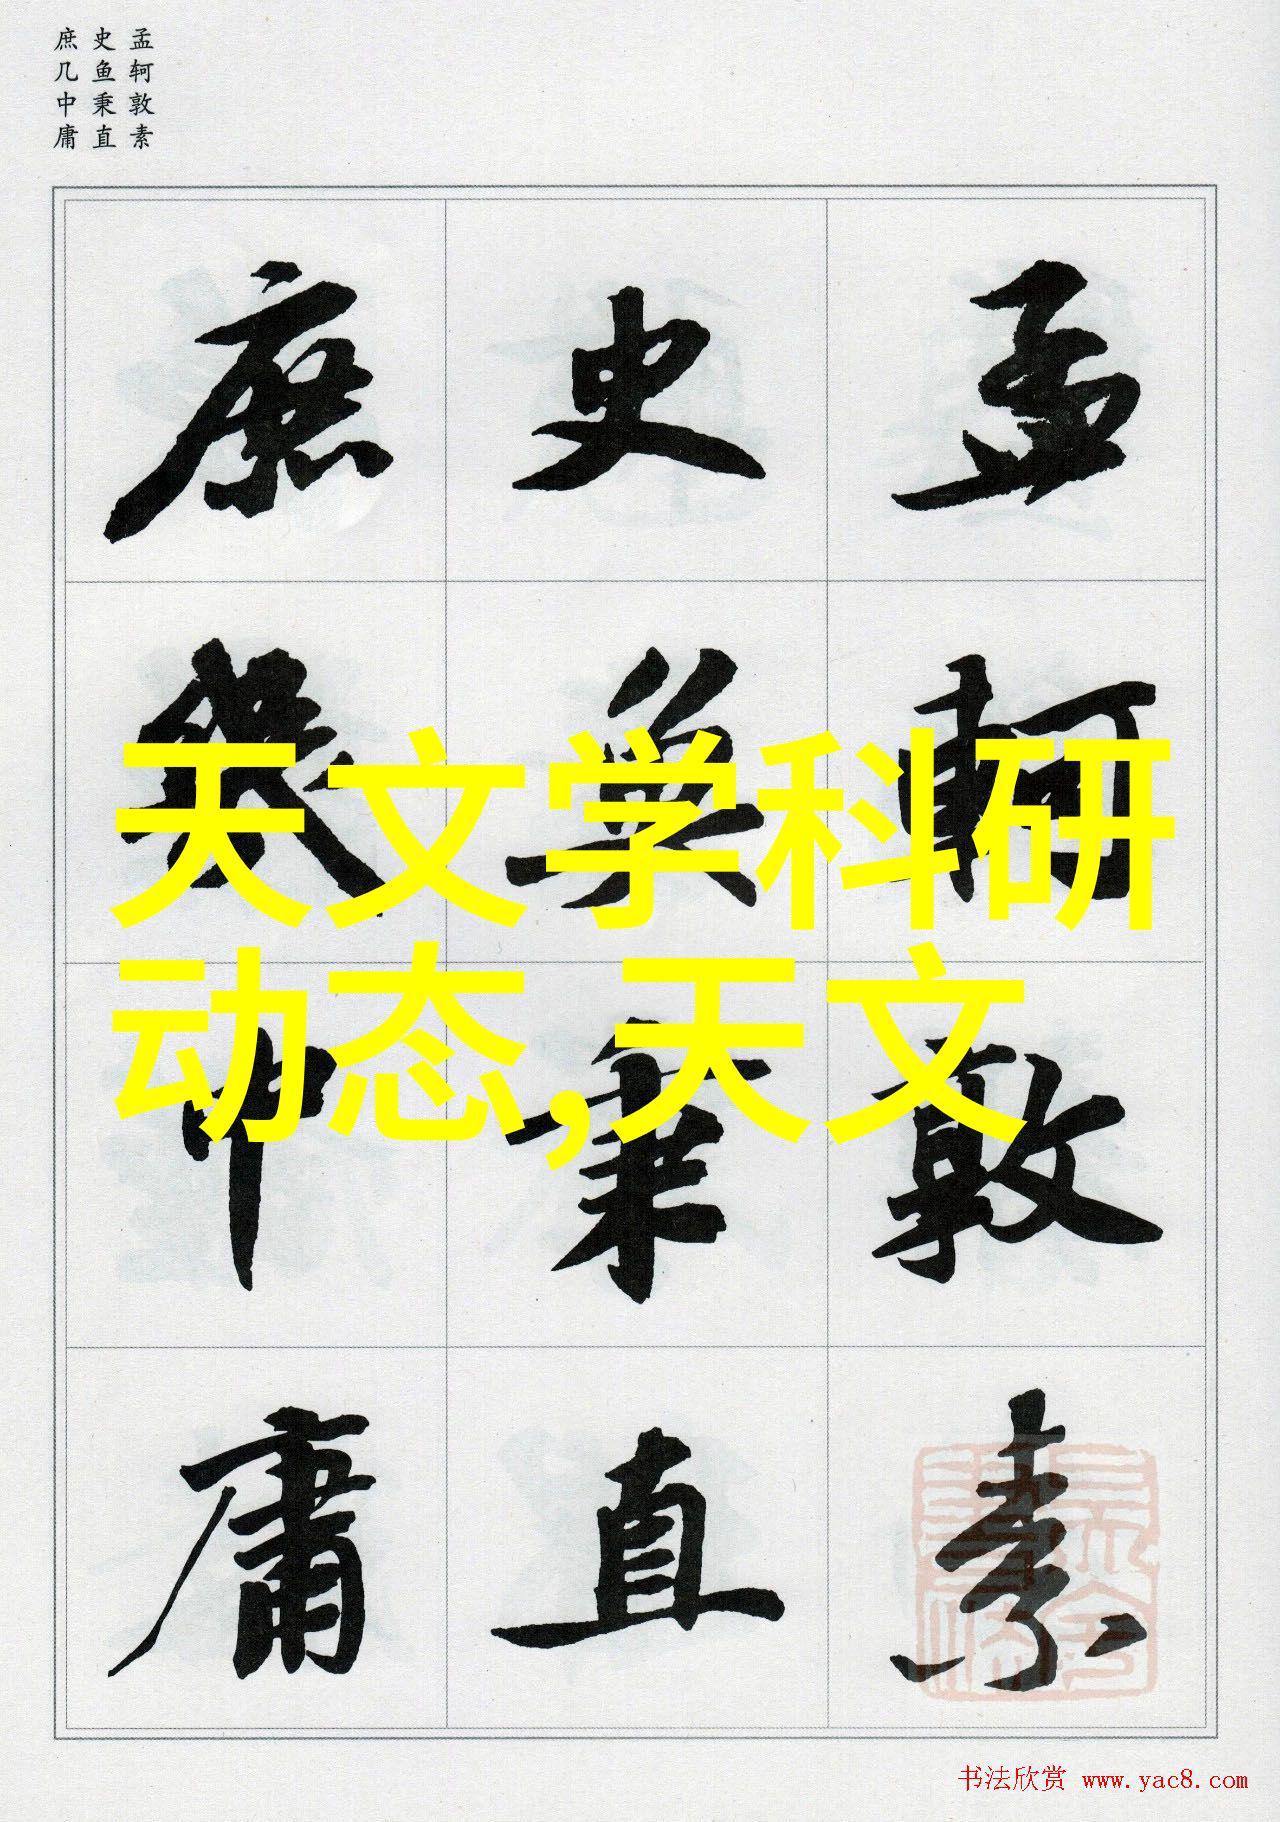 孟轲敦素
史鱼秉直
庶几中庸
孟軻敦素
史魚秉直
庶幾中庸
天文学科研
动态,天文
书法欣赏 www.yac8.com